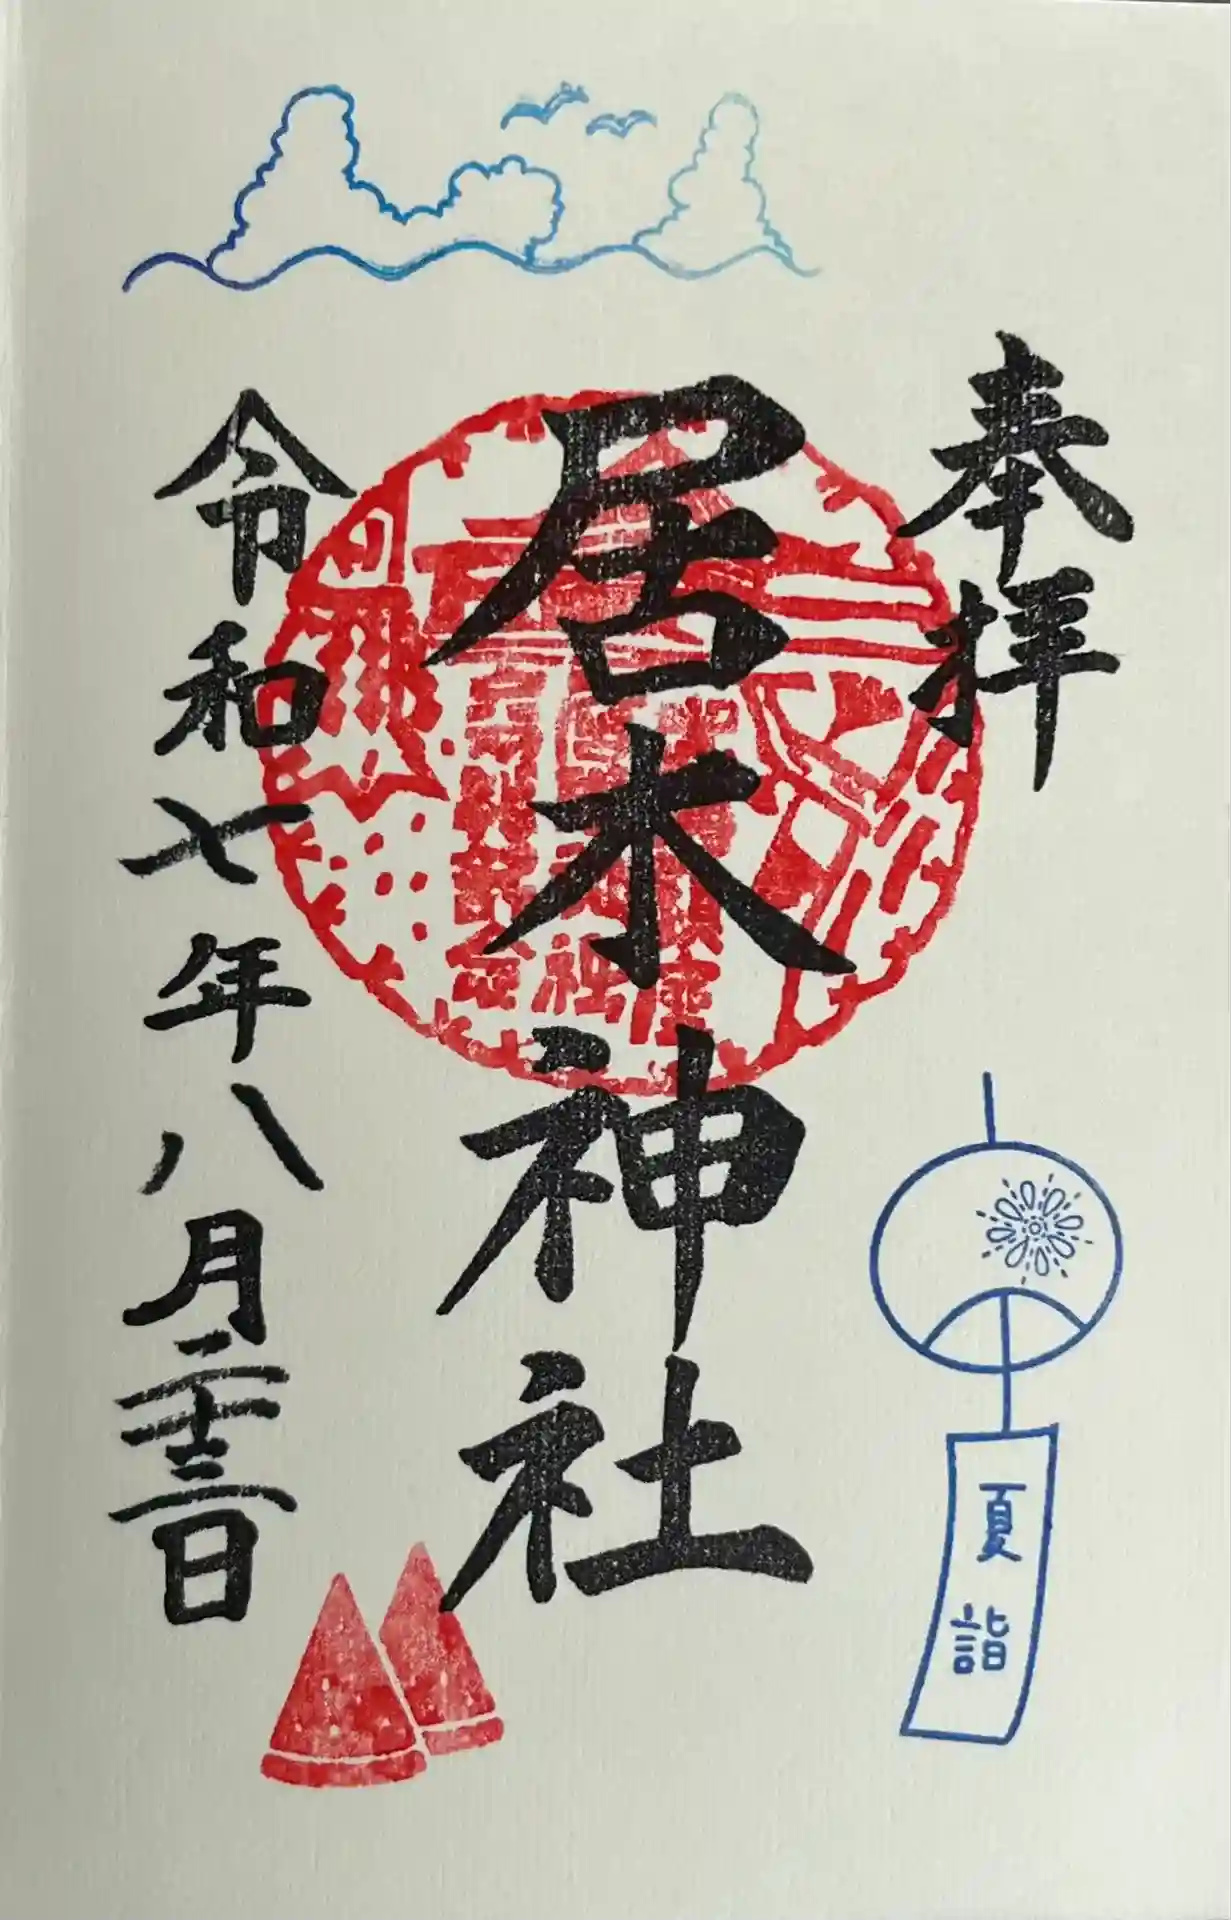 奉拝
居木神社
令和七年八月二十三日
夏詣